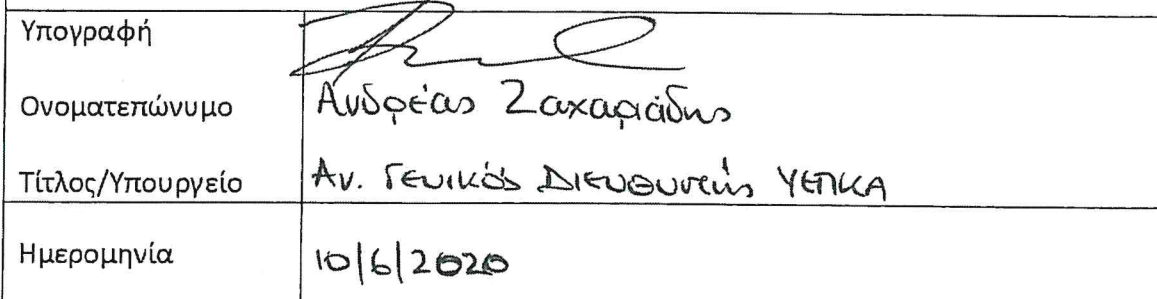 Υπογραφή
Ονοματεπώνυμο Ανδρέας Ζαχαριάδης
Τίτλος/Υπουργείο Αν. Γενικός Διευθυντής ΥΕΠΚΑ
Ημερομηνία 10/6/2020